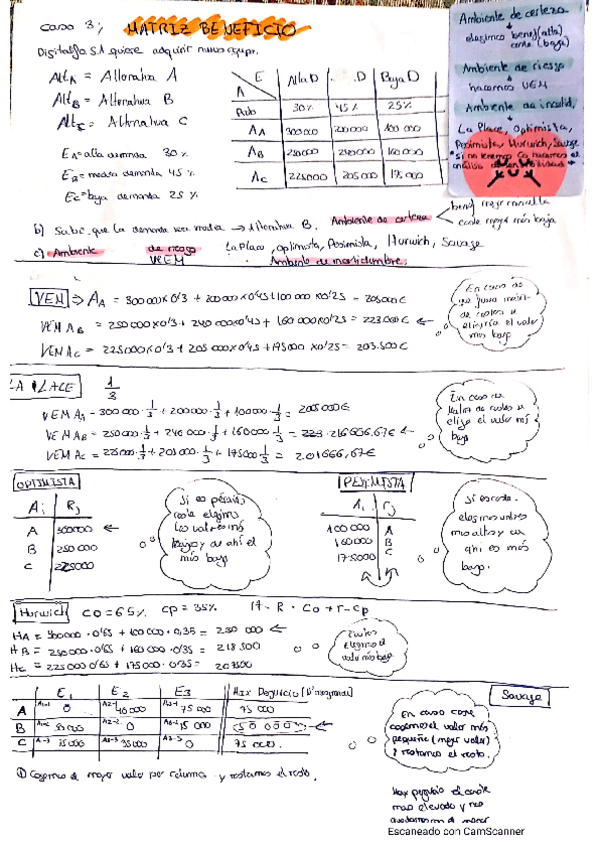 Caso 3: MATRIZ BENEFICIO
Digitalfa S.A quiere adquirir nuevo equipo.
Alt A = Alternativa A
Alt B = Alternativa B
Alt C = Alternativa C
EA = alta demanda 30%
EB = media demanda 45%
EC = baja demanda 25%
E Alta D . D Baja D
A
Prob 30% 45% 25%
AA 300000 200000 100 000
AB 250000 240000 160000
AC 225000 205000 175 000
Ambiente de certeza
elegimos benef (alta)
coste (baja)
Ambiente de riesgo
hacemos VEM
Ambiente de incertid.
La Place, optimista,
Pesimista, Hurwich, Savage
b) Sabe que la demanda sea media → Alternativa B. Ambiente de certeza
benef mejor con alta
coste mejor más baja
c) Ambiente de riesgo La Place, optimista, Pesimista, Hurwich, Savage
VEM Ambiente de incertidumbre.
VEM ⇒ AA = 300000 x 0'3 + 200000 x 0'45 + 100 000 x 0'25 = 205000€
VEM AB = 250000 x 0'3 + 240 000 x 0'45 + 160 000 x 0'25 = 223000€ ←
VEM AC = 225000 x 0'3 + 205 000 x 0'45 + 175 000 x 0'25 = 203.500€
En caso de
que fuera matriz
de costes se
elegiría el valor
más bajo
LA PLACE 1/3
VEM AA = 300 000 · 1/3 + 200000 · 1/3 + 100000 · 1/3 = 200000€
VEM AB = 250000 · 1/3 + 240 000 · 1/3 + 160000 · 1/3 = 216666,67€ ←
VEM AC = 225000 · 1/3 + 205000 · 1/3 + 175000 · 1/3 = 201666,67€
En caso de
Matriz de costes se
elige el valor más
bajo
OPTIMISTA
Ai Rj
A 300000 ←
B 250 000
C 225000
Si es
coste elegimos
los valores más
bajos y de ahí el
más bajo
PESIMISTA
Ai rj
100 000 A
160 000 B
175000 C
Si es coste.
elegimos valores
más altos y de
ahí el más
bajo.
Hurwich CO = 65% CP = 35% H = R · Co + r · Cp
HA = 300000 · 0'65 + 100 000 · 0,35 = 230 000 ←
HB = 250000 · 0'65 + 160 000 · 0'35 = 218 500
HC = 225 000 · 0'65 + 175000 · 0'35 = 207500
Costes
elegimos el
valor más bajo
Savage
E1 E2 E3
A 0 40 000 75 000 75 000
B 50 000 0 15 000 50 000 ←
C 75 000 35000 0 75 000.
En caso coste
cogemos el valor más
pequeño (mejor valor)
y restamos el resto.
① Cogemos el mejor valor por columna y restamos el resto.
Max perjuicio el coste
mas elevado y nos
quedamos con el menor
Escaneado con CamScanner